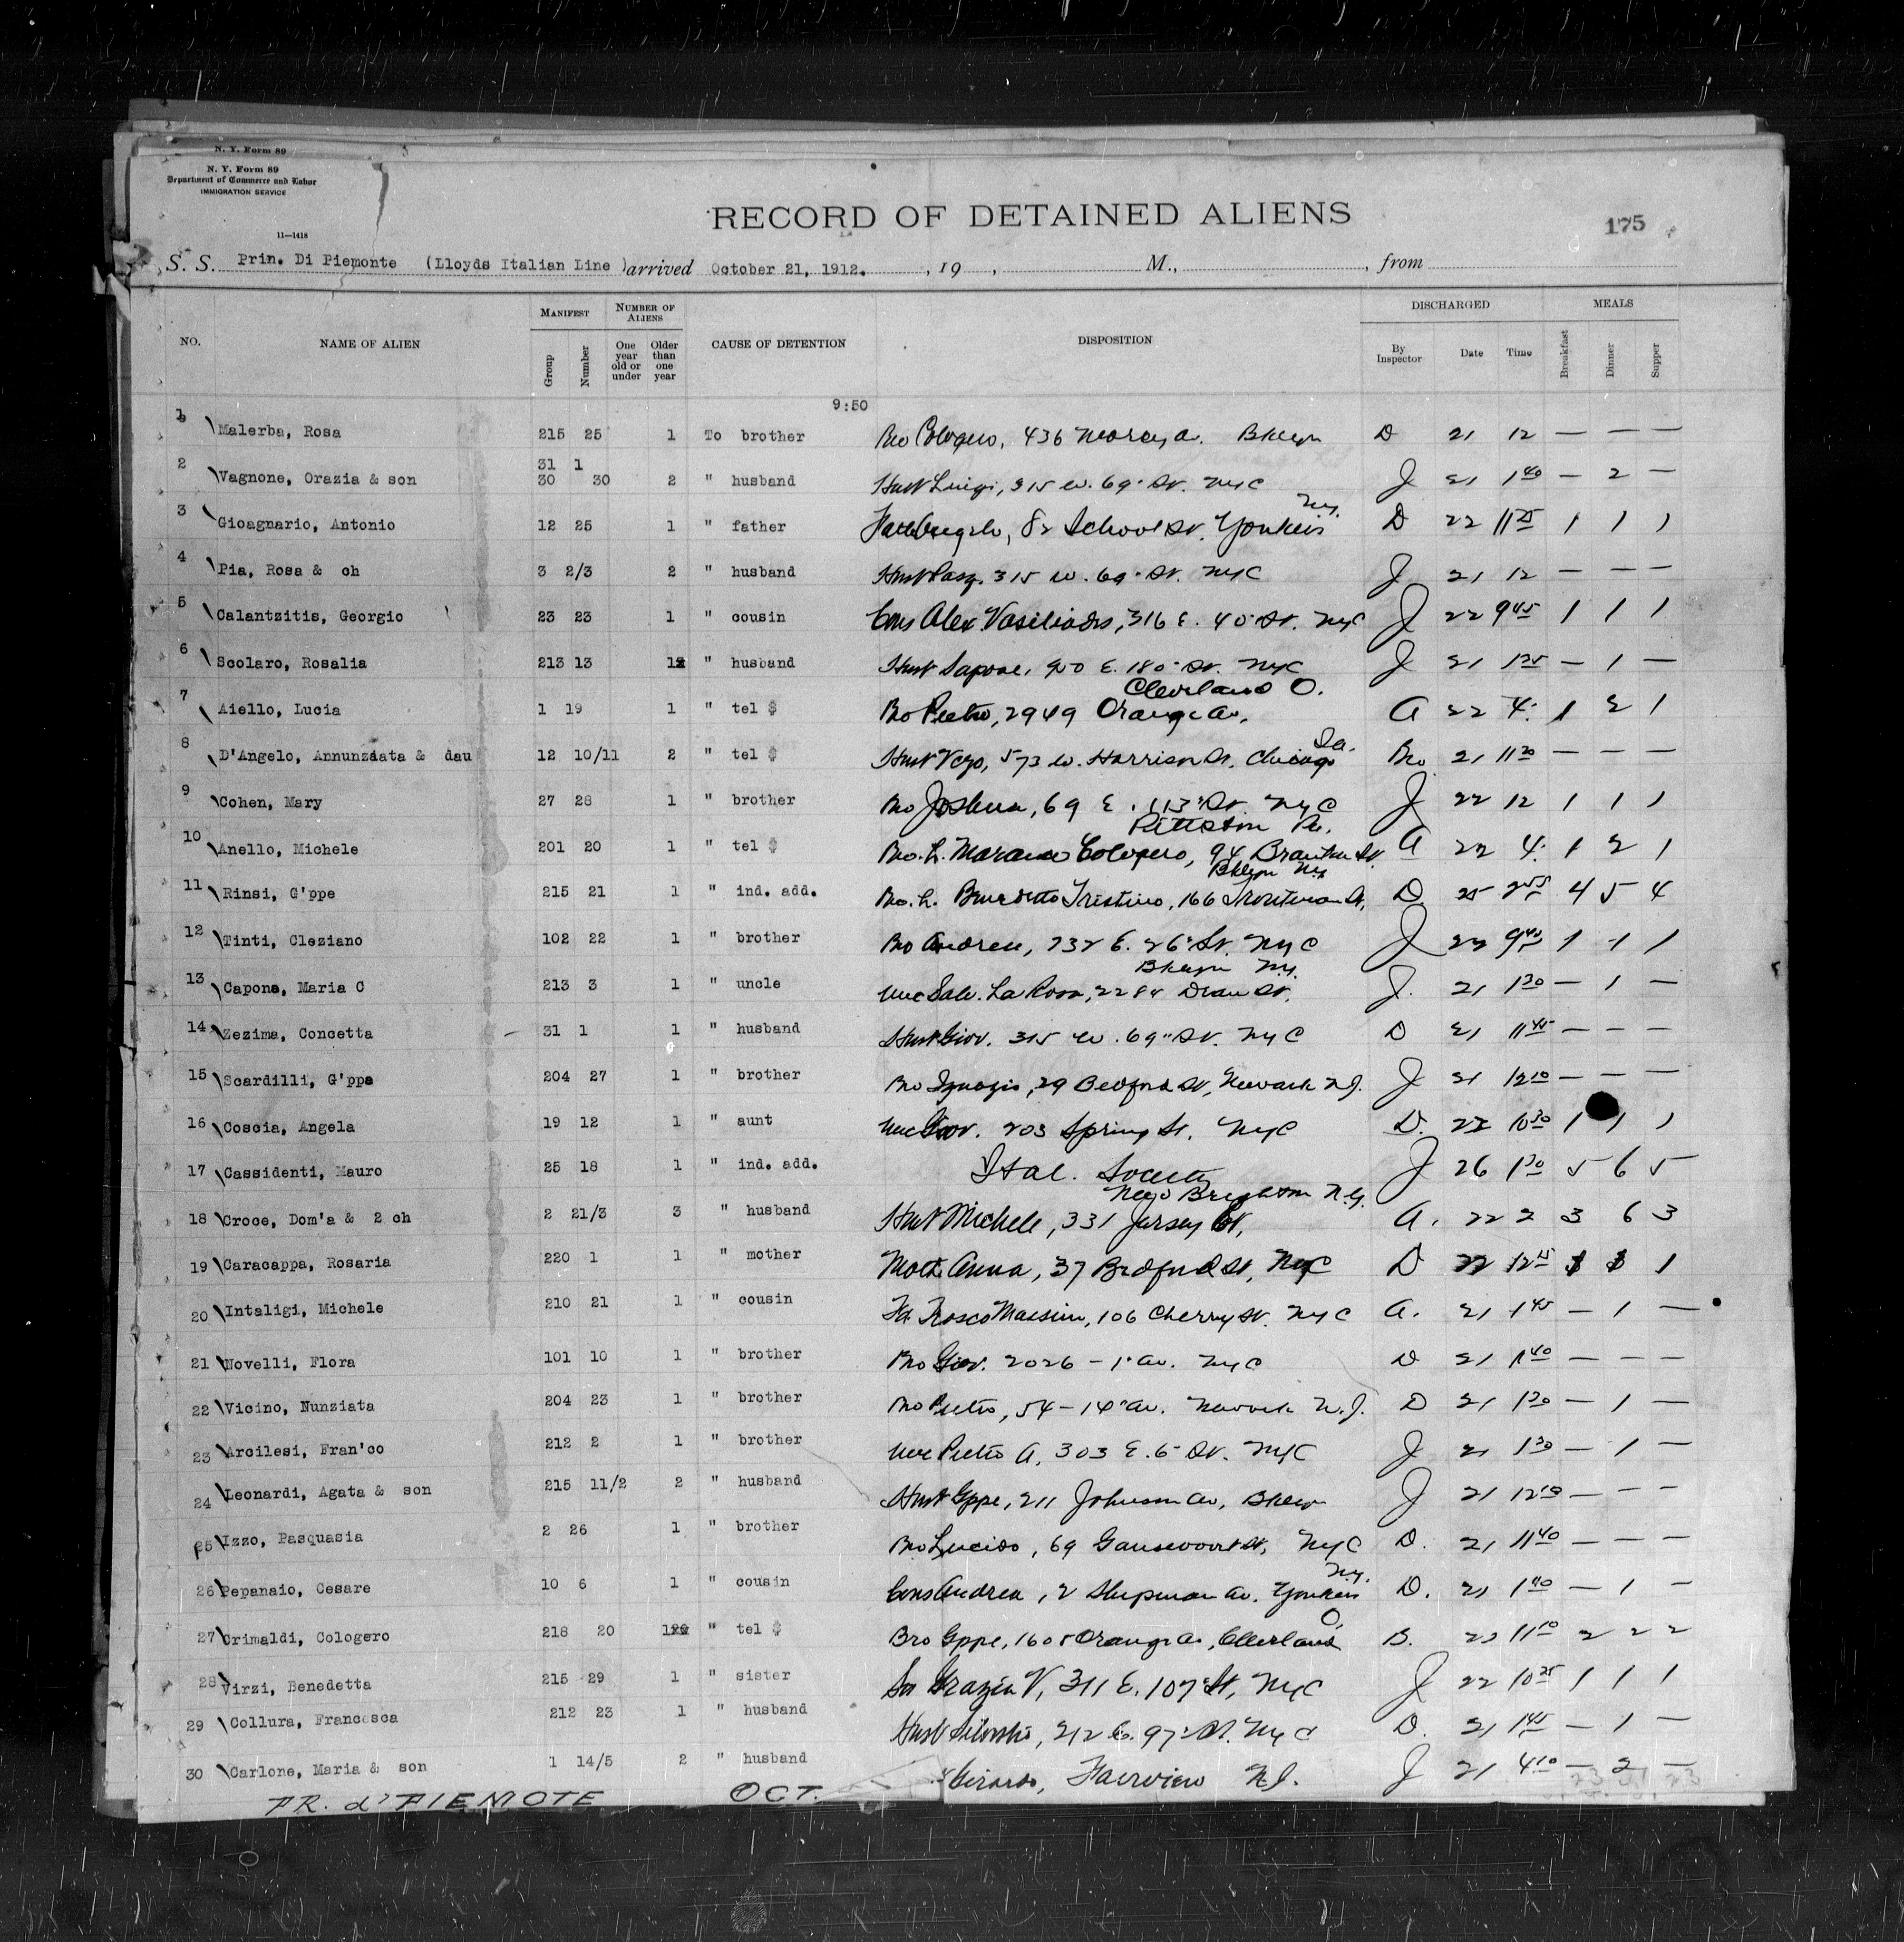 N. Y. Form 89
N. Y. Form 89
Department of Commerce and Labor
IMMIGRATION SERVICE
11—1418
RECORD OF DETAINED ALIENS
175
S. S. Prin. Di Piemonte (Lloyds Italian Line ) arrived October 21, 1912. , 19 , M., , from
NO. NAME OF ALIEN MANIFEST Group Number NUMBER OF ALIENS One year old or under Older than one year CAUSE OF DETENTION DISPOSITION DISCHARGED By Inspector Date Time MEALS Breakfast Dinner Supper
9:50
1 Malerba, Rosa 215 25 1 To brother Bro Cologero, 436 Marcy av. Bklyn D 21 12 — — —
2 Vagnone, Orazia & son 31 1 30 30 2 " husband Husb Luigi, 315 W. 69" St. NYC J 21 1 40 — 2 —
3 Gioagnario, Antonio 12 25 1 " father Fath Angelo, 82 School St. Yonkers N.Y. D 22 11 25 1 1 1
4 Pia, Rosa & ch 3 2/3 2 " husband Husb Pasq. 315 W. 69" St. NYC J 21 12 — — —
5 Calantzitis, Georgio 23 23 1 " cousin Cous Alex Vasiliades, 316 E. 40" St. NYC J 22 9 45 1 1 1
6 Scolaro, Rosalia 213 13 1 " husband Husb E. 180" St. NYC J 21 1 25 — 1 —
7 Aiello, Lucia 1 19 1 " tel $ Bro Pietro, 2949 Orange Av. Cleveland O. A 22 4 1 2 1
8 D'Angelo, Annunziata & dau 12 10/11 2 " tel $ Husb 573 W. Harrison St. Chicago Bro 21 11 30 — — —
9 Cohen, Mary 27 28 1 " brother Bro Joshua, 69 E. 113" St. NYC J 22 12 1 1 1
10 Anello, Michele 201 20 1 " tel $ Bro. L. Cologero, 94 St. Pittston Pa. A 22 4 1 2 1
11 Rinsi, G'ppe 215 21 1 " ind. add. Bro. L. Benedetto Tristino, 166 Troutman St. Bklyn NY D 25 2 55 4 5 4
12 Tinti, Cleziano 102 22 1 " brother Bro Andrea, 232 E. 26" St. NYC J 22 9 40 1 1 1
13 Capona, Maria C 213 3 1 " uncle Unc Salv. La Rosa, 2284 Dean St. Bklyn N.Y. J. 21 1 30 — 1 —
14 Zezima, Concetta 31 1 1 " husband Husb Giov. 315 W. 69" St. NYC D 21 11 45 — — —
15 Scardilli, G'ppa 204 27 1 " brother Bro Ignazio, 29 Bedford St, Newark N.J. J 21 12 10 — — —
16 Coscia, Angela 19 12 1 " aunt Unc Giov. 203 Spring St. NYC D. 22 10 30 1 1 1
17 Cassidenti, Mauro 25 18 1 " ind. add. Ital. Society J 26 1 30 5 6 5
18 Croce, Dom'a & 2 ch 2 21/3 3 " husband Husb Michele, 331 Jersey St, New Brighton N.Y. A. 22 2 3 6 3
19 Caracappa, Rosaria 220 1 1 " mother Moth Anna, 37 Bedford St, NYC D 22 12 15 1 1 1
20 Intaligi, Michele 210 21 1 " cousin 106 Cherry St. NYC A. 21 1 45 — 1 —
21 Novelli, Flora 101 10 1 " brother Bro Giov. 2026 - 1" av. NYC D 21 1 40 — — —
22 Vicino, Nunziata 204 23 1 " brother Bro Pietro, 54 - 14" av. Newark N.J. D 21 1 30 — 1 —
23 Arcilesi, Fran'co 212 2 1 " brother Unc Pietro A, 303 E. 6" St. NYC J 21 1 30 — 1 —
24 Leonardi, Agata & son 215 11/2 2 " husband Husb Gppe, 211 Johnson av, Bklyn J 21 12 10 — — —
25 Izzo, Pasquasia 2 26 1 " brother Bro Lucido, 69 Gansevoort St, NYC D. 21 11 40 — — —
26 Pepanaio, Cesare 10 6 1 " cousin Cous Andrea, 2 Shipman av. Yonkers N.Y. D. 21 1 40 — 1 —
27 Grimaldi, Cologero 218 20 1 " tel $ Bro Gppe, 1605 Orange av, Cleveland O. B. 23 11 10 2 2 2
28 Virzi, Benedetta 215 29 1 " sister Sis Grazia V, 311 E. 107" St, NYC J 22 10 25 1 1 1
29 Collura, Francesca 212 23 1 " husband Husb 212 E. 97" St. NYC D. 21 1 45 — 1 —
30 Carlone, Maria & son 1 14/5 2 " husband Girardo, Fairview N.J. J 21 4 10 — 2 —
PR. d'PIEMOTE OCT.